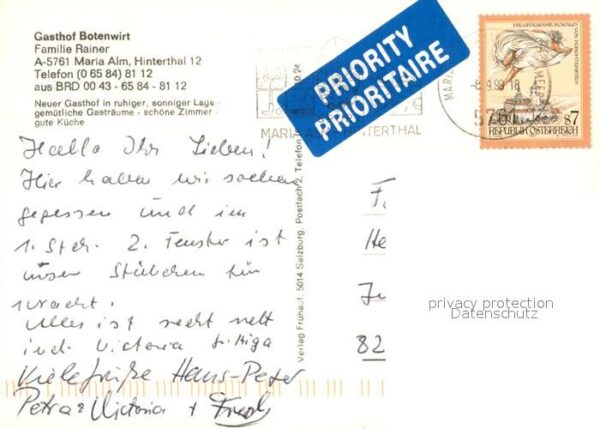 Gasthof Botenwirt
Familie Rainer
A-5761 Maria Alm, Hinterthal 12
Telefon (0 65 84) 81 12
aus BRD 00 43 - 65 84 - 81 12
Neuer Gasthof in ruhiger, sonniger Lage -
gemütliche Gasträume - schöne Zimmer -
gute Küche
PRIORITY
PRIORITAIRE
MARIA HINTERTHAL
8.9.98-18
5761
S7
REPUBLIK ÖSTERREICH
Verlag Frühauf, 5014 Salzburg, Postfach 2, Telefon
Hallo Ihr Lieben!
Hier haben wir soeben
gegessen und im
1. Stck. 2. Fenster ist
unser Stübchen für
Nacht.
Alles ist recht nett
incl. Victoria
Viele Grüße Hans-Peter
Petra Victoria + Fred
F.
He
Ju
82
privacy protection
Datenschutz